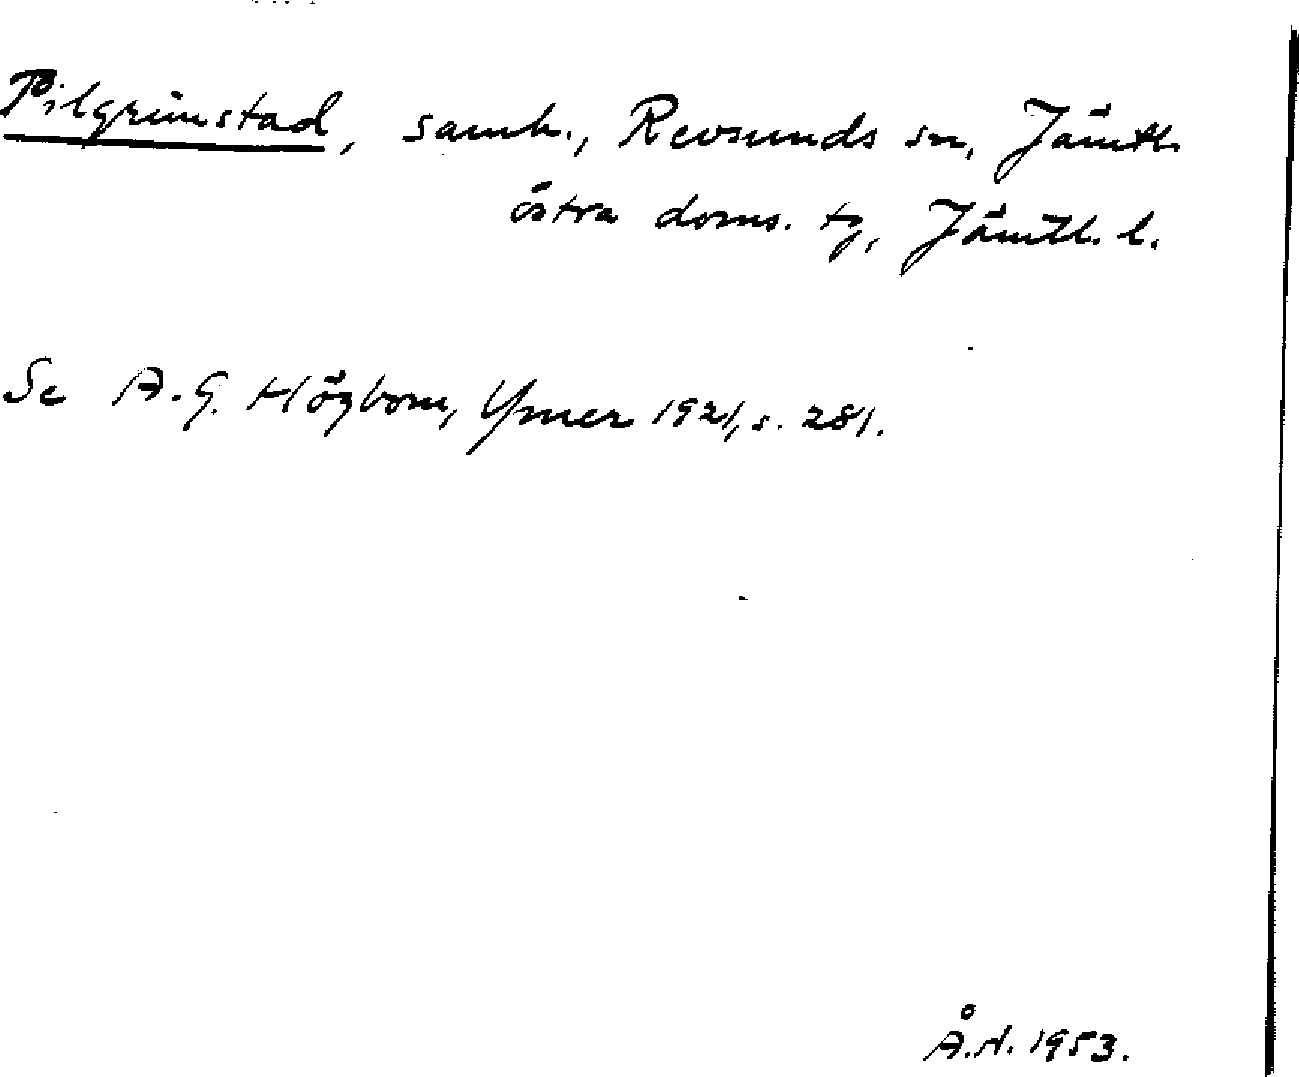 Pilgrimstad, samh., Revsunds sn, Jämtl.
östra doms. tg, Jämtl. l.
Se A.G. Högbom, Ymer 1921, s. 281.
Å.N. 1953.